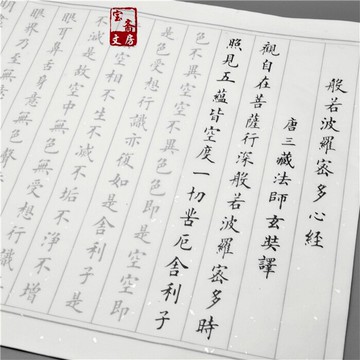 宝斋
文房
般若波羅密多心經
唐三藏法師玄奘譯
觀自在菩薩行深般若波羅密多時
照見五蘊皆空度一切苦厄舍利子
色不異空空不異色色即是空空即
是色受想行識亦復如是舍利子是
空相不生不滅不垢不淨不增
不減是故空中無色無受想行識
眼耳鼻舌身意無色聲
眼界乃至無意
明